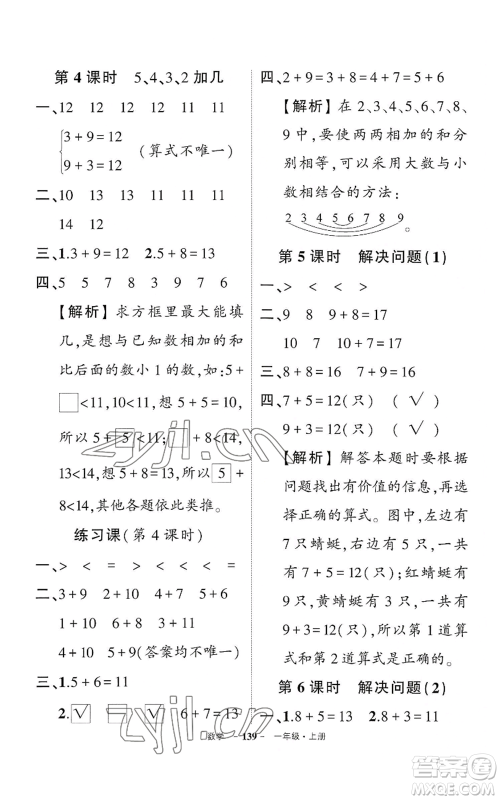 第 4 课时　5、4、3、2 加几
一、12　12　12　12　11　11
3 + 9 = 12
9 + 3 = 12
(算式不唯一)
二、10　13　13　12　11　11
14　12
三、1. 3 + 9 = 12　2. 5 + 8 = 13
四、5　5　7　8　3　9　7　6
【解析】求方框里最大能填
几,是想与已知数相加的和
比后面的数小 1 的数,即:5 +
□<11,10<11,因为 5+5=10,
所以 5 + 5 <11; □ + 8<14,
13<14,5 + 8 = 13,所以 5 +
8<14,其他各题以此类推。
练习课(第 4 课时)
一、>　<　=　>　<　=
二、3 + 9　2 + 9　4 + 7　5 + 6
1 + 9　4 + 6　2 + 8　3 + 7
5 + 5　9 + 4(答案均不唯一)
三、1. 5 + 6 = 11
2. √　□　√　6 + 7 = 13
四、2 + 9 = 3 + 8 = 4 + 7 = 5 + 6
【解析】在 2、3、4、5、6、7、8、
9 中,要使两两相加的和分
别相等,可以采用大数与小
数相结合的方法:
2 3 4 5 6 7 8 9。
第 5 课时　解决问题(1)
一、>　<　<　<
二、9　8　9 + 8 = 17
10　7　10 + 7 = 17
三、8 + 8 = 16　7 + 9 = 16
四、7 + 5 = 12(只)　( √ )
9 + 3 = 12(只)　( √ )
【解析】解答本题时要根据
问题找出有价值的信息,选
择正确的算式。图中,左边有
7 只蜻蜓,右边有 5 只,一共
有 7 + 5 = 12(只);红蜻蜓有
9 只,黄蜻蜓有 3 只,一共有
9 + 3 = 12(只)。所以第 1 道算
式和第 2 道算式是正确的。
第 6 课时　解决问题(2)
一、1. 8 + 5 = 13　2. 8 + 3 = 11
数学　- 139 -　一年级·上册
zyjl.cn